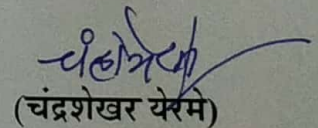 (चंद्रशेखर येरमे)